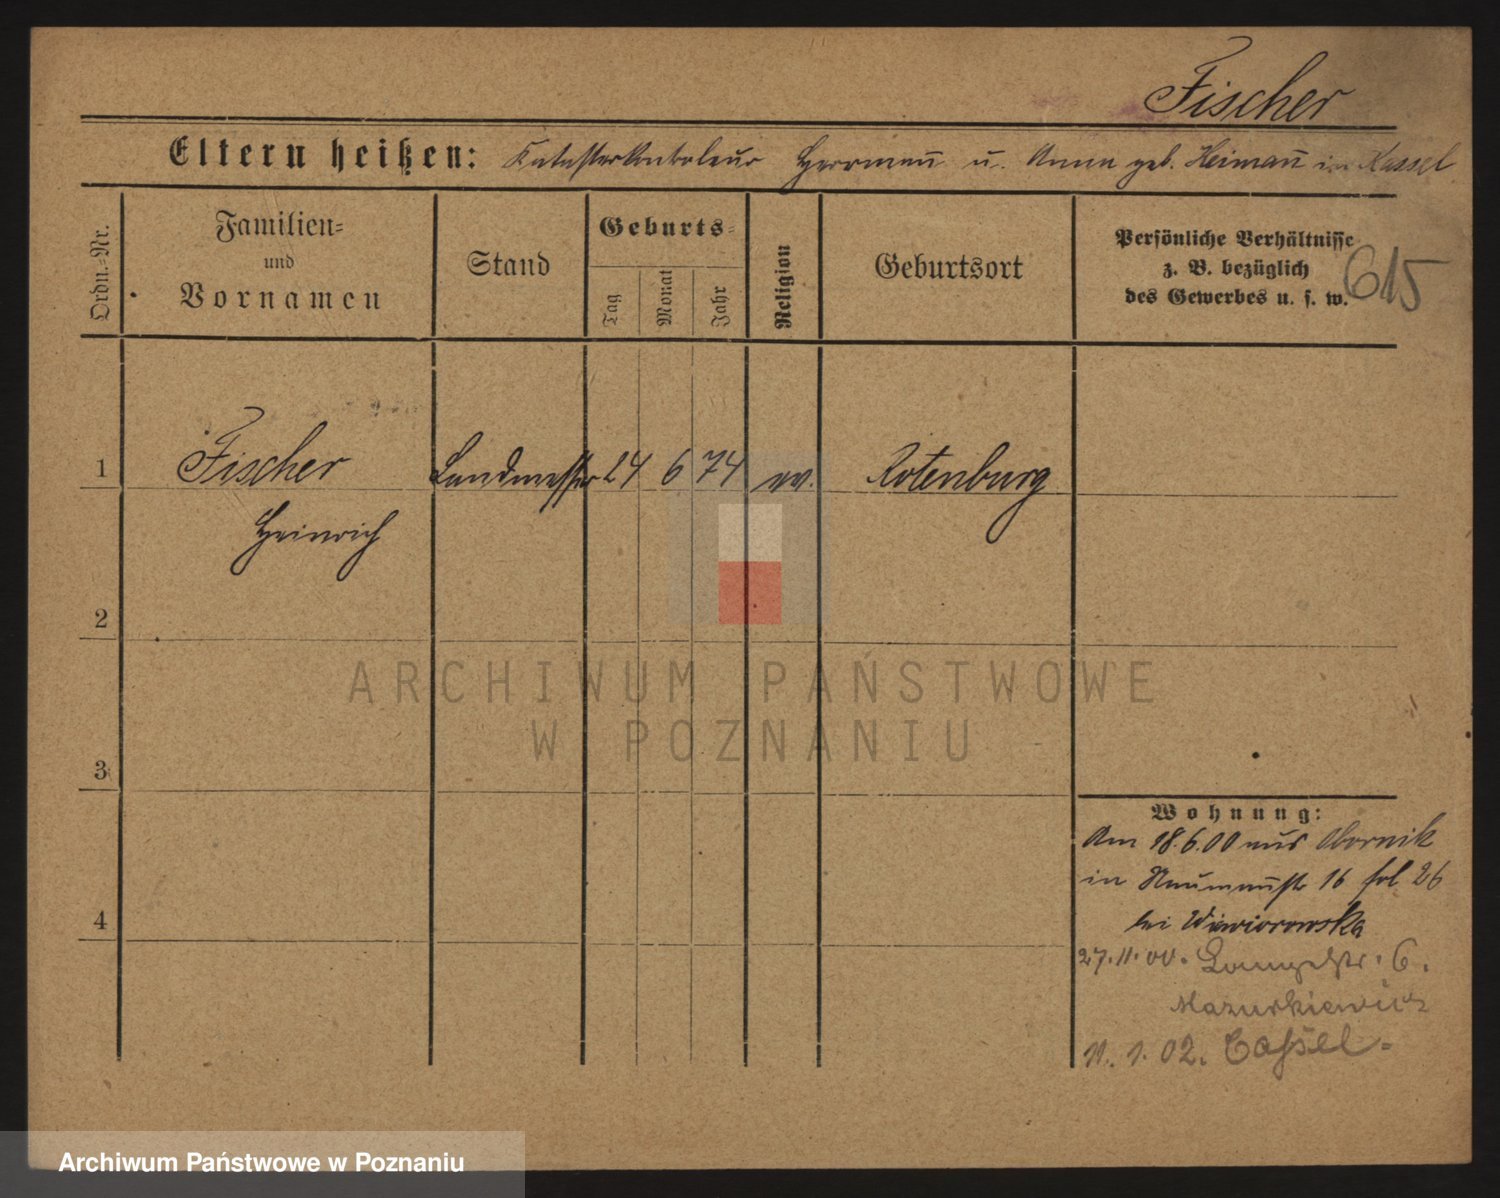 Fischer
Eltern heißen: Katasterkontroleur Herrman̄ u. Anna geb. Heiman̄ in Kassel
Ordn.-Nr.
Familien-
und
Vornamen
Stand
Geburts-
Tag
Monat
Jahr
Religion
Geburtsort
Persönliche Verhältnisse
z. B. bezüglich
des Gewerbes u. s. w.
615
1 Fischer Landmesser 24 6 74 ev. Rotenburg
Heinrich
2
3
4
Wohnung:
Am 18.6.00 aus Obornik
in Nauman̄str 16 fol. 26
bei Wiewiorowska
27.11.00. Langestr. 6.
Mazurkiewicz
11. 1. 02. Cassel
ARCHIWUM PAŃSTWOWE
W POZNANIU
Archiwum Państwowe w Poznaniu